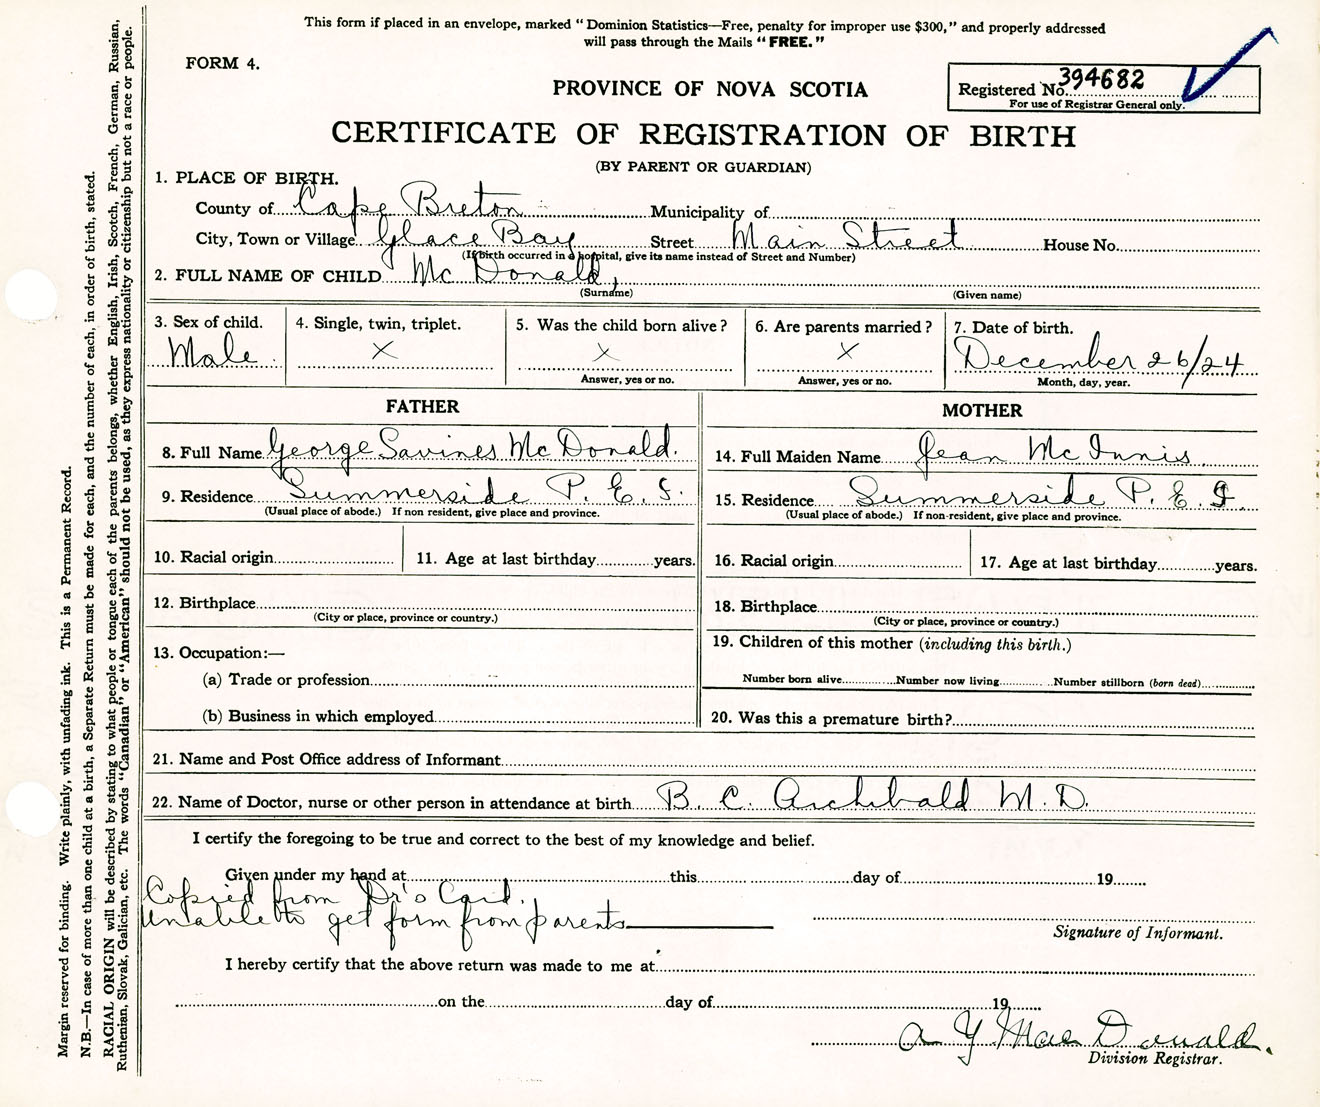 This form if placed in an envelope, marked "Dominion Statistics—Free, penalty for improper use $300," and properly addressed
will pass through the Mails "FREE."
FORM 4.
PROVINCE OF NOVA SCOTIA
Registered No. 394682
For use of Registrar General only.
CERTIFICATE OF REGISTRATION OF BIRTH
(BY PARENT OR GUARDIAN)
1. PLACE OF BIRTH.
County of Cape Breton Municipality of
City, Town or Village Glace Bay Street Main Street House No.
(If birth occurred in a hospital, give its name instead of Street and Number)
2. FULL NAME OF CHILD Mc Donald,
(Surname) (Given name)
3. Sex of child. 4. Single, twin, triplet. 5. Was the child born alive? 6. Are parents married? 7. Date of birth.
Male X X X December 26/24
Answer, yes or no. Answer, yes or no. Month, day, year.
FATHER MOTHER
8. Full Name George Savines Mc Donald. 14. Full Maiden Name Jean Mc Innis
9. Residence Summerside P. E. I. 15. Residence Summerside P. E. I.
(Usual place of abode.) If non resident, give place and province. (Usual place of abode.) If non-resident, give place and province.
10. Racial origin 11. Age at last birthday years. 16. Racial origin 17. Age at last birthday years.
12. Birthplace 18. Birthplace
(City or place, province or country.) (City or place, province or country.)
13. Occupation:— 19. Children of this mother (including this birth.)
(a) Trade or profession Number born alive Number now living Number stillborn (born dead)
(b) Business in which employed 20. Was this a premature birth?
21. Name and Post Office address of Informant
22. Name of Doctor, nurse or other person in attendance at birth B. C. Archibald M. D.
I certify the foregoing to be true and correct to the best of my knowledge and belief.
Given under my hand at this day of 19
Copied from Dr's Card.
unable to get form from parents
Signature of Informant.
I hereby certify that the above return was made to me at
on the day of 19
A Y Mac Donald.
Division Registrar.
Margin reserved for binding. Write plainly, with unfading ink. This is a Permanent Record.
N.B.—In case of more than one child at a birth, a Separate Return must be made for each, and the number of each, in order of birth, stated.
RACIAL ORIGIN will be described by stating to what people or tongue each of the parents belongs, whether English, Irish, Scotch, French, German, Russian,
Ruthenian, Slovak, Galician, etc. The words "Canadian" or "American" should not be used, as they express nationality or citizenship but not a race or people.